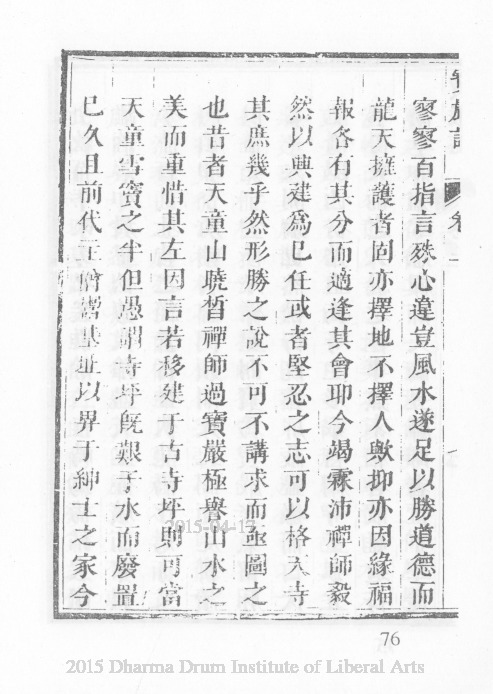 寥寥百指言殊心違豈風水遂足以勝道德而
龍天擁護者固亦擇地不擇人歟抑亦因緣福
報各有其分而適逢其會耶今竭霖沛禪師毅
然以興建為己任或者堅忍之志可以格天寺
其庶幾乎然形勝之說不可不講求而亟圖之
也昔者天童山曉晳禪師過寶嚴極譽山水之
美而重惜其左因言若移建于古寺坪則可當
天童雪竇之半但愚謂寺坪既艱于水而廢置
已久且前代主僧鬻基址以畀于紳士之家今
2015-04-17
76
2015 Dharma Drum Institute of Liberal Arts